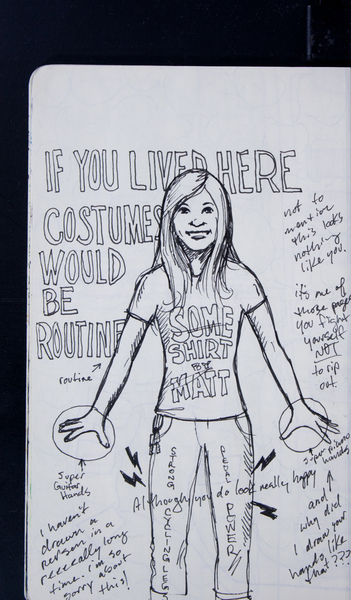 IF YOU LIVED HERE
COSTUMES
WOULD
BE
ROUTINE
routine
SOME
SHIRT
BY
MATT
not to
mention
this looks
nothing
like you.
it's one of
those pages
you fight
yourself
NOT
to rip
out.
Super
Guitar
Hands
super piano
hands
STRONG CYCLING LEGS
PEDAL POWER
Although you do look really happy
I haven't
drawn a
person in a
reeeeally long
time. i'm so
sorry about
this!
and
why did
I draw your
hands like
that???